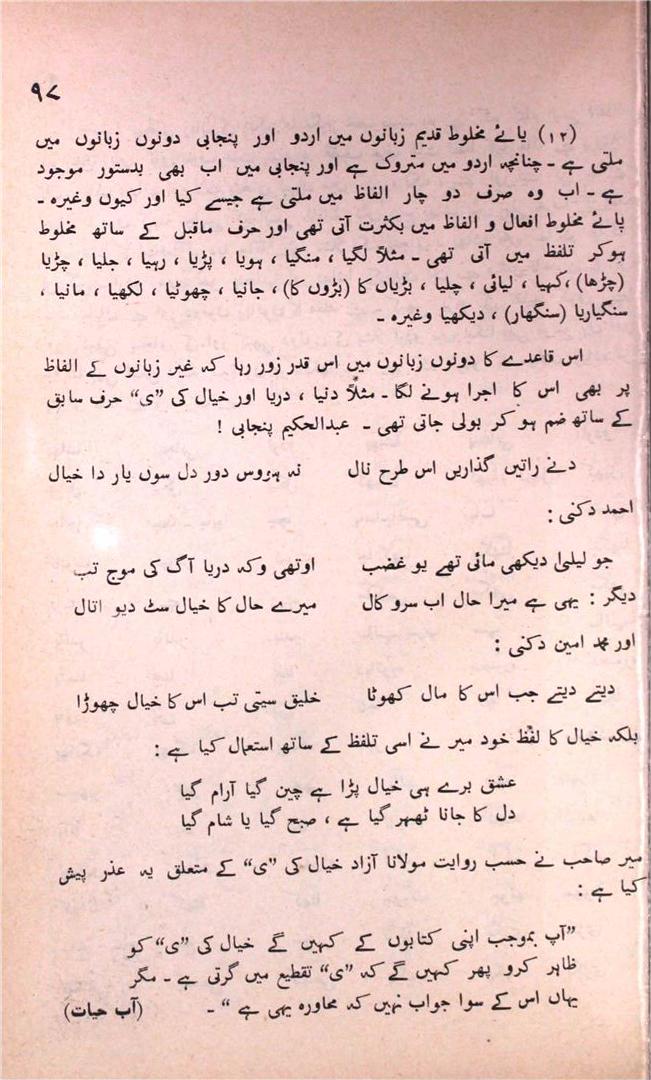 ۹۷
(۱۲) یائے مخلوط قدیم زبانوں میں اردو اور پنجابی دونوں زبانوں میں
ملتی ہے ۔ چنانچہ اردو میں متروک ہے اور پنجابی میں اب بھی بدستور موجود
ہے ۔ اب وہ صرف دو چار الفاظ میں ملتی ہے جیسے کیا اور کیوں وغیرہ ۔
یائے مخلوط افعال و الفاظ میں بکثرت آتی تھی اور حرف ماقبل کے ساتھ مخلوط
ہوکر تلفظ میں آتی تھی ۔ مثلاً لگیا ، منگیا ، ہویا ، پڑیا ، رہیا ، جلیا ، چڑیا
(چڑھا) ، کہیا ، لیائی ، چلیا ، بڑیاں کا (بڑوں کا) ، جانیا ، چھوٹیا ، لکھیا ، مانیا ،
سنگیاریا (سنگھار) ، دیکھیا وغیرہ ۔
اس قاعدے کا دونوں زبانوں میں اس قدر زور رہا کہ غیر زبانوں کے الفاظ
پر بھی اس کا اجرا ہونے لگا ۔ مثلاً دنیا ، دریا اور خیال کی ”ی“ حرف سابق
کے ساتھ ضم ہو کر بولی جاتی تھی ۔ عبدالحکیم پنجابی !
دنے راتیں گذاریں اس طرح نال نہ ہروس دور دل سوں یار دا خیال
احمد دکنی :
جو لیلیٰ دیکھی مائی تھے یو غضب اوتھی وکہ دریا آگ کی موج تب
دیگر : یہی ہے میرا حال اب سرو کال میرے حال کا خیال سٹ دیو اتال
اور محمد امین دکنی :
دیتے دیتے جب اس کا مال کھوٹا خلیق سیتی تب اس کا خیال چھوڑا
بلکہ خیال کا لفظ خود میر نے اسی تلفظ کے ساتھ استعمال کیا ہے :
عشق برے ہی خیال پڑا ہے چین گیا آرام گیا
دل کا جانا ٹھہر گیا ہے ، صبح گیا یا شام گیا
میر صاحب نے حسب روایت مولانا آزاد خیال کی ”ی“ کے متعلق یہ عذر پیش
کیا ہے :
”آپ بموجب اپنی کتابوں کے کہیں گے خیال کی ”ی“ کو
ظاہر کرو پھر کہیں گے کہ ”ی“ تقطیع میں گرتی ہے ۔ مگر
یہاں اس کے سوا جواب نہیں کہ محاورہ یہی ہے “ ۔ (آب حیات)